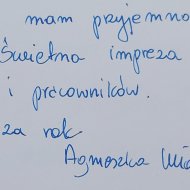 mam przyjemno
Świetna impreza
i pracowników.
za rok
Agnieszka